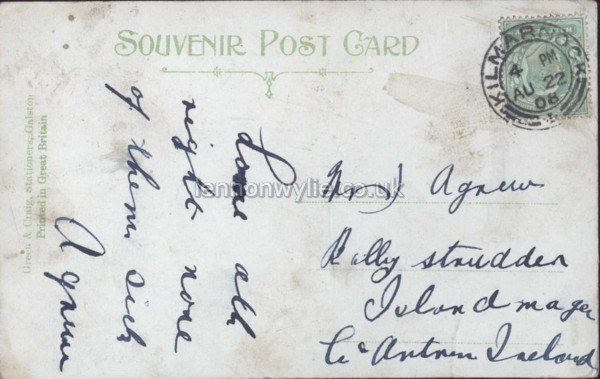 SOUVENIR POST CARD
KILMARNOCK
4 PM
AU 22
08
Green & Craig, Stationers, Galston
Printed in Great Britain
lennonwylie.co.uk
all
right none
of them sick
Agnew
Agnew
Ballystrudder
Islandmagee
Co Antrim Ireland